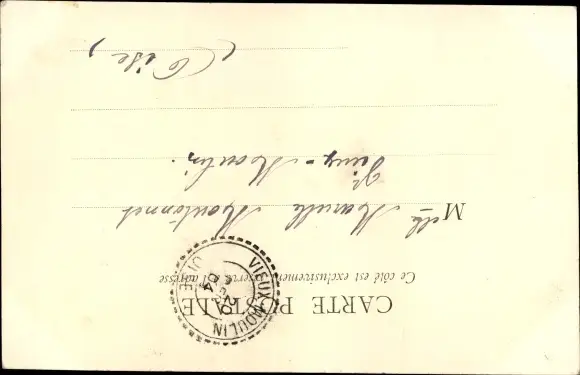 CARTE POSTALE
Ce côté est exclusivement réservé à l'adresse
VIEUX-MOULIN
OISE
20
04
Melle Marcelle Montonnet
Vieux-Moulin.
(Oise)